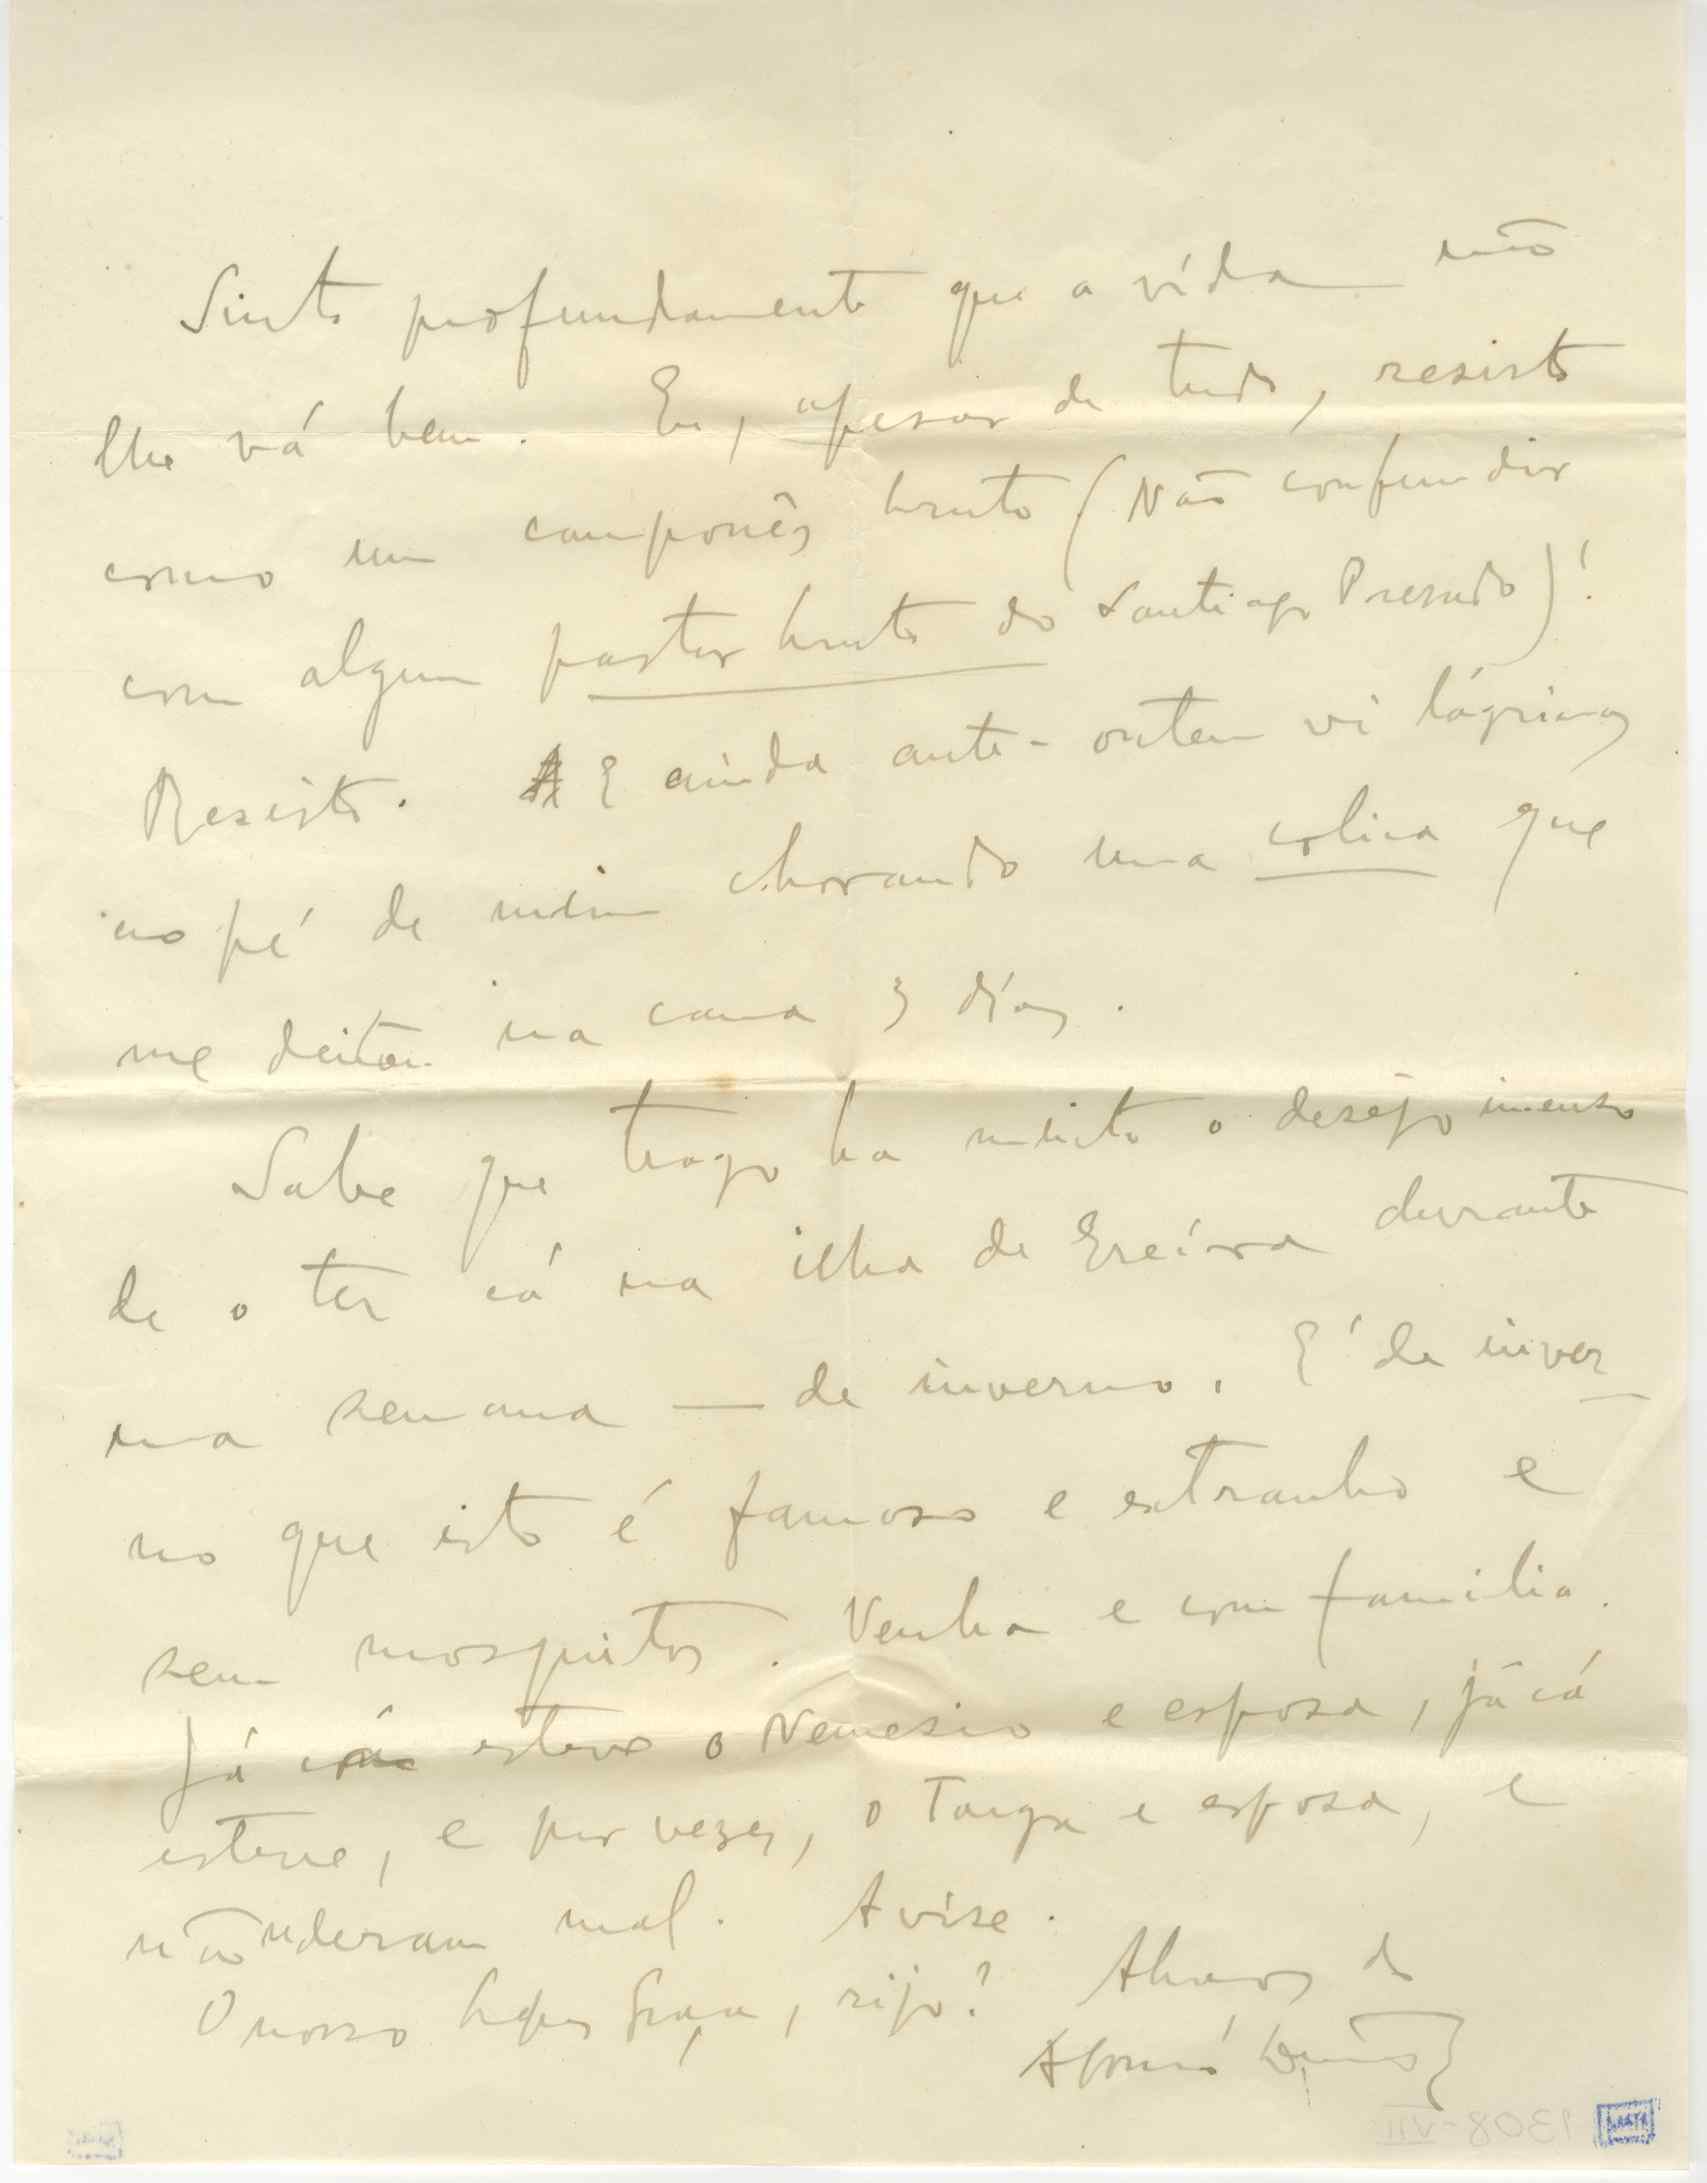 Sinto profundamente que a vida não
lhe vá bem. Eu, apesar de tudo, resisto
como um camponês bruto (Não confundir
com algum pastor bruto do Santiago Presado)!
Resisto. E ainda ante-ontem vi lágrimas
ao pé de mim chorando uma colica que
me deitou na cama 3 días.
Sabe que trago ha muito o desejo imenso
de o ter cá na ilha de Ereíra durante
uma semana — de inverno. E' de inver-
no que isto é famoso e extranho e
sem mosquitos. Venha e com familia.
Já cá esteve o Nemesio e esposa, já cá
esteve, e por vezes, o Torga e esposa, e
não deram mal. Avise.
O nosso Lopes Graça, rijo? Abraços do
Afonso Duarte
1308-VII